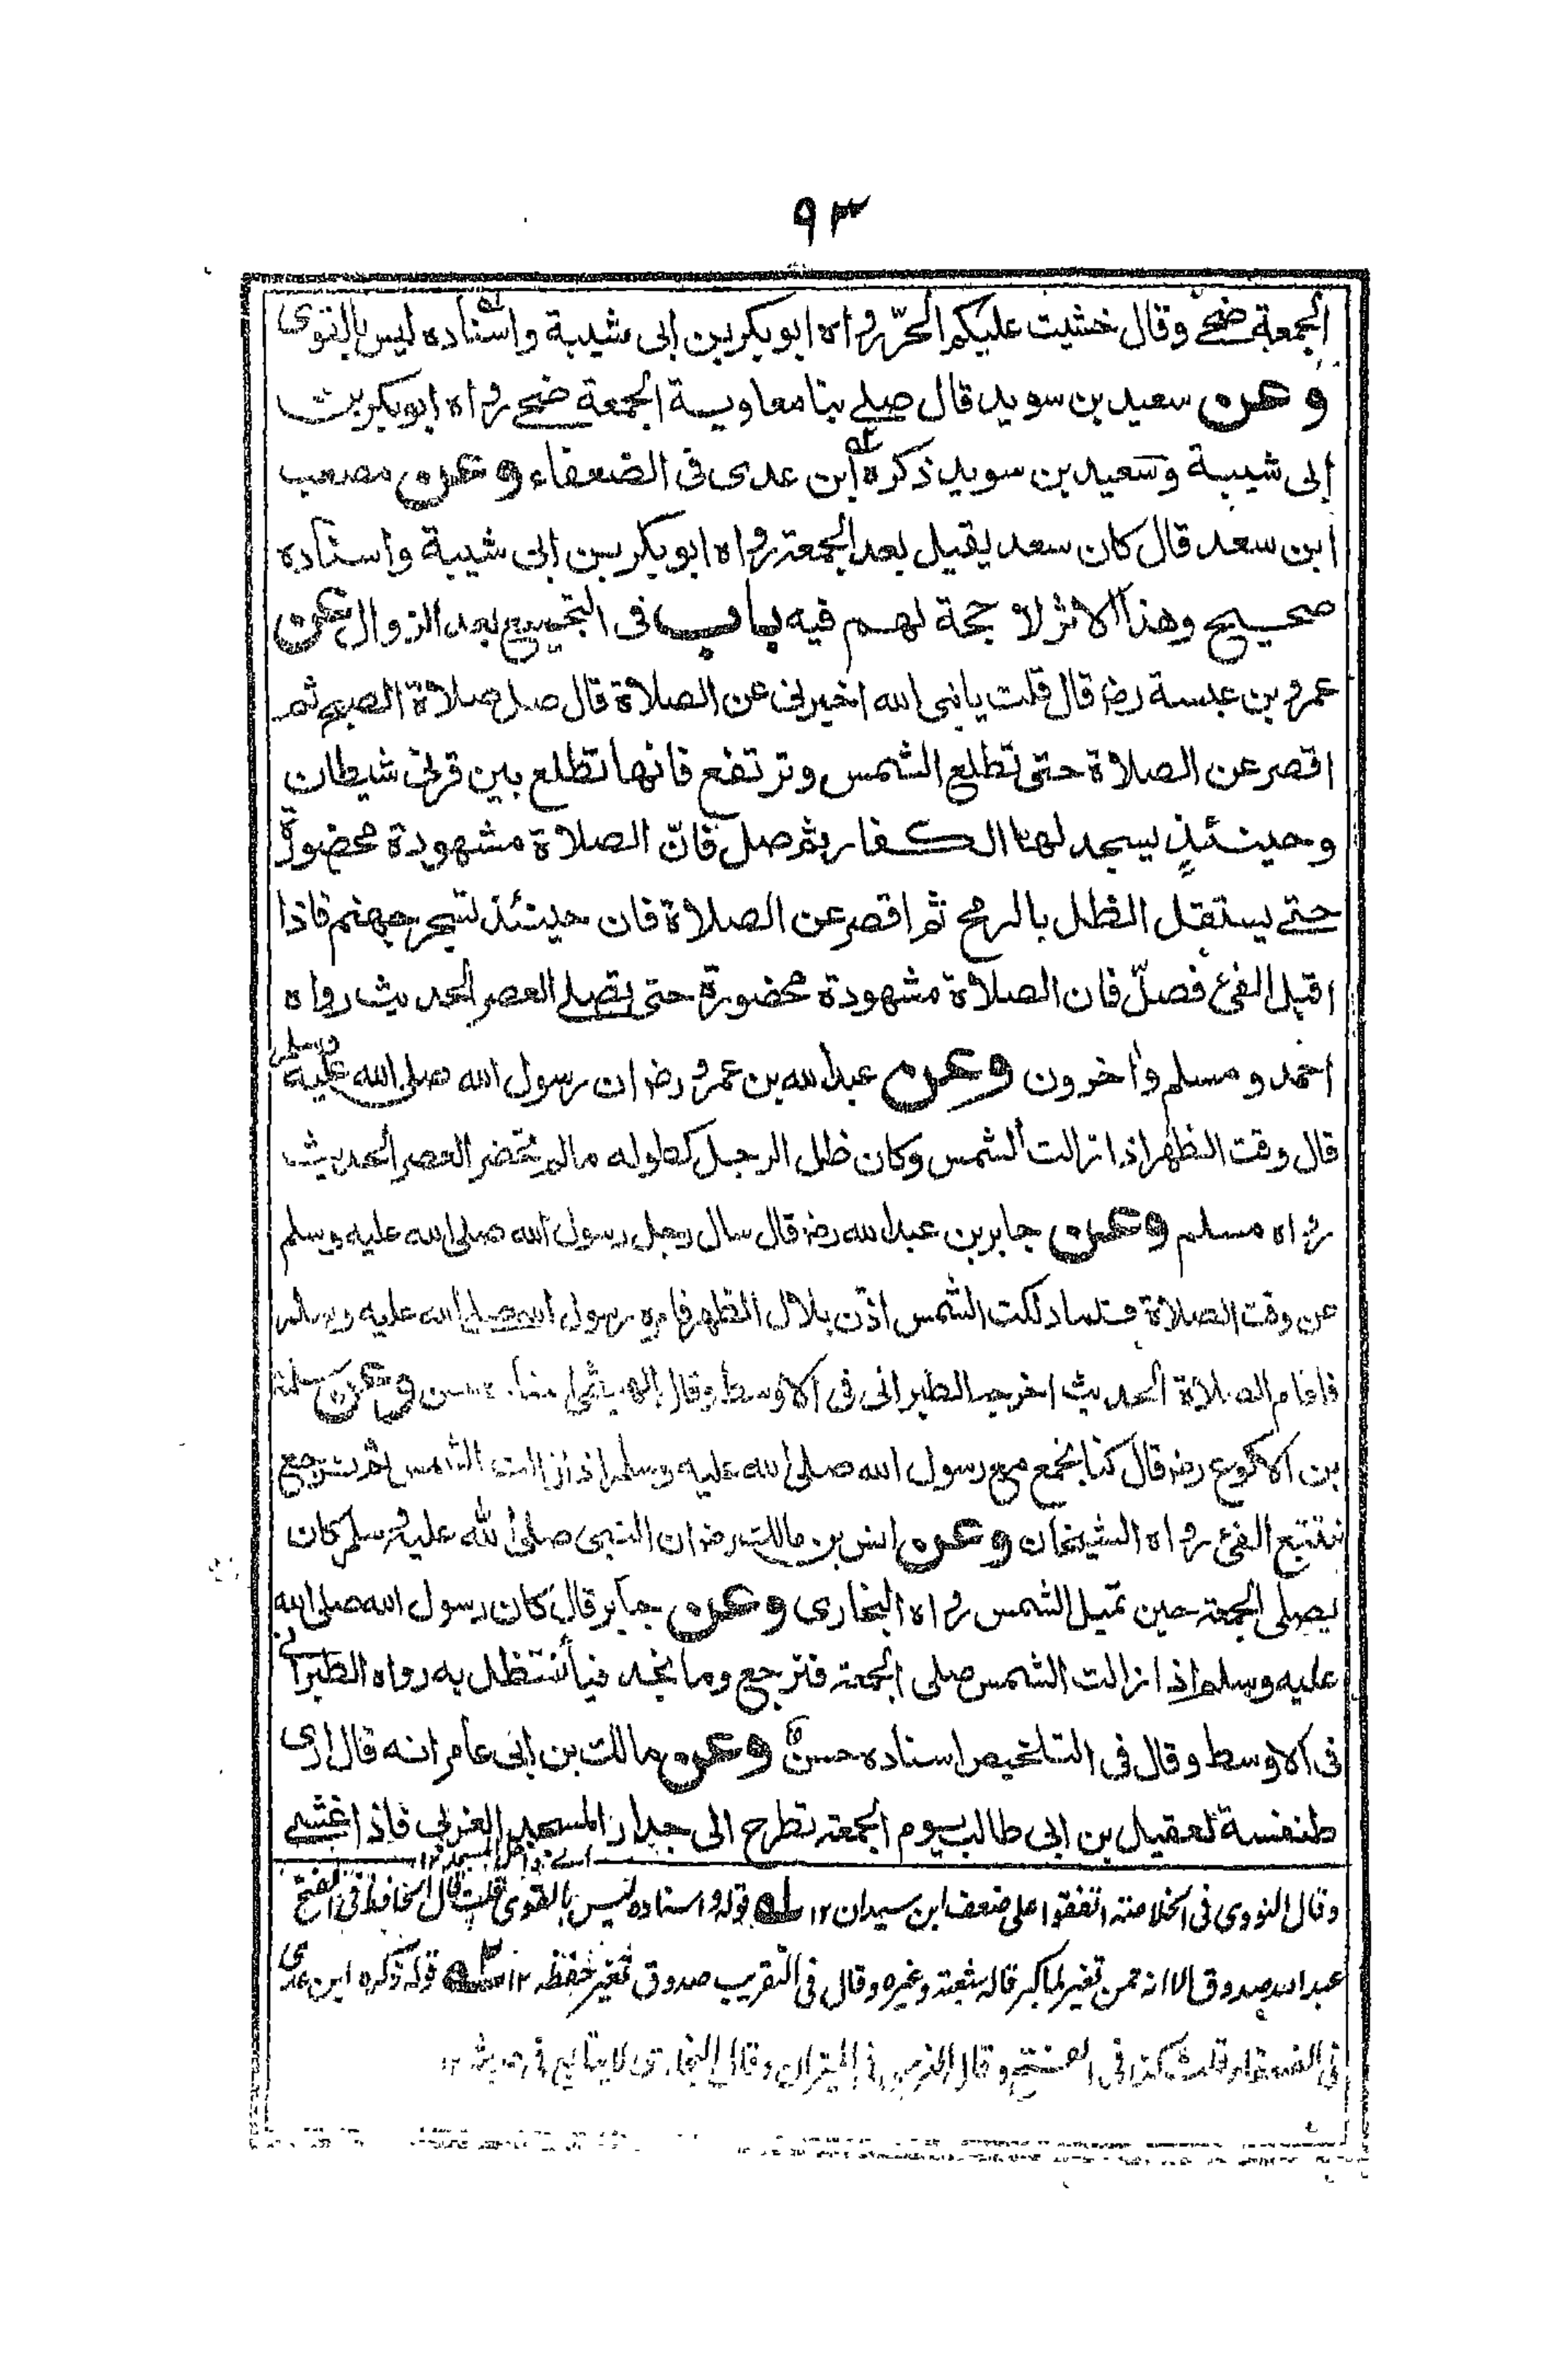 ٩٣
الجمعة ضحى وقال خشيت عليكم الحرّ رواه ابو بكر بن ابى شيبة واسناده ليس بالقوى
وعن سعيد بن سويد قال صلى بنا معاوية الجمعة ضحى رواه ابو بكر بن
ابى شيبة وسعيد بن سويد ذكره ابن عدى فى الضعفاء وعن مصعب
ابن سعد قال كان سعد يقيل بعد الجمعة رواه ابو بكر بن ابى شيبة واسناده
صحيح وهذا الاثر لا حجة لهم فيه باب فى التجميع بعد الزوال عن
عمرو بن عبسة رضـ قال قلت يا نبى الله اخبرنى عن الصلاة قال صل صلاة الصبح ثم
اقصر عن الصلاة حتى تطلع الشمس وترتفع فانها تطلع بين قرنى شيطان
وحينئذٍ يسجد لها الكفار ثم صلّ فانّ الصلاة مشهودة محضورة
حتى يستقل الظل بالرمح ثم اقصر عن الصلاة فان حينئذ تسجر جهنم فاذا
اقبل الفئ فصلّ فان الصلاة مشهودة محضورة حتى تصلى العصر الحديث رواه
احمد ومسلم وآخرون وعن عبد الله بن عمرو رضـ ان رسول الله صلى الله عليه وسلم
قال وقت الظهر اذا زالت الشمس وكان ظل الرجل كطوله مالم تحضر العصر الحديث
رواه مسلم وعن جابر بن عبد الله رضـ قال سال رجل رسول الله صلى الله عليه وسلم
عن وقت الصلاة فلما دلكت الشمس اذّن بلال الظهر فامره رسول الله صلى الله عليه وسلم
فاقام الصلاة الحديث اخرجه الطبرانى فى الاوسط وقال الهيثمى حسن وعن سلمة
بن الاكوع رضـ قال كنا نجمع مع رسول الله صلى الله عليه وسلم اذا زالت الشمس ثم نرجع
نتتبع الفئ رواه الشيخان وعن انس بن مالك رضـ ان النبى صلى الله عليه وسلم كان
يصلى الجمعة حين تميل الشمس رواه البخارى وعن جابر قال كان رسول الله صلى الله
عليه وسلم اذا زالت الشمس صلى الجمعة فنرجع وما نجد فيأ نستظل به رواه الطبرانى
فى الاوسط وقال فى التلخيص اسناده حسن وعن مالك بن ابى عامر انه قال ارى
طنفسة لعقيل بن ابى طالب يوم الجمعة تطرح الى جدار المسجد الغربى فاذا غشى
وقال النووى فى الخلاصة اتفقوا على ضعف ابن سيدان ١٢ قوله واسناده ليس بالقوى قلت قال الحافظ فى الفتح
عبد الله صدوق الا انه ممن تغير لما كبر قاله شعبة وغيره وقال فى التقريب صدوق تغير حفظه ١٢ قوله ذكره ابن عدى
فى الضعفاء قلت كذا فى الفتح وقال الذهبى فى الميزان وقال البخارى لا يتابع فى حديثه ١٢